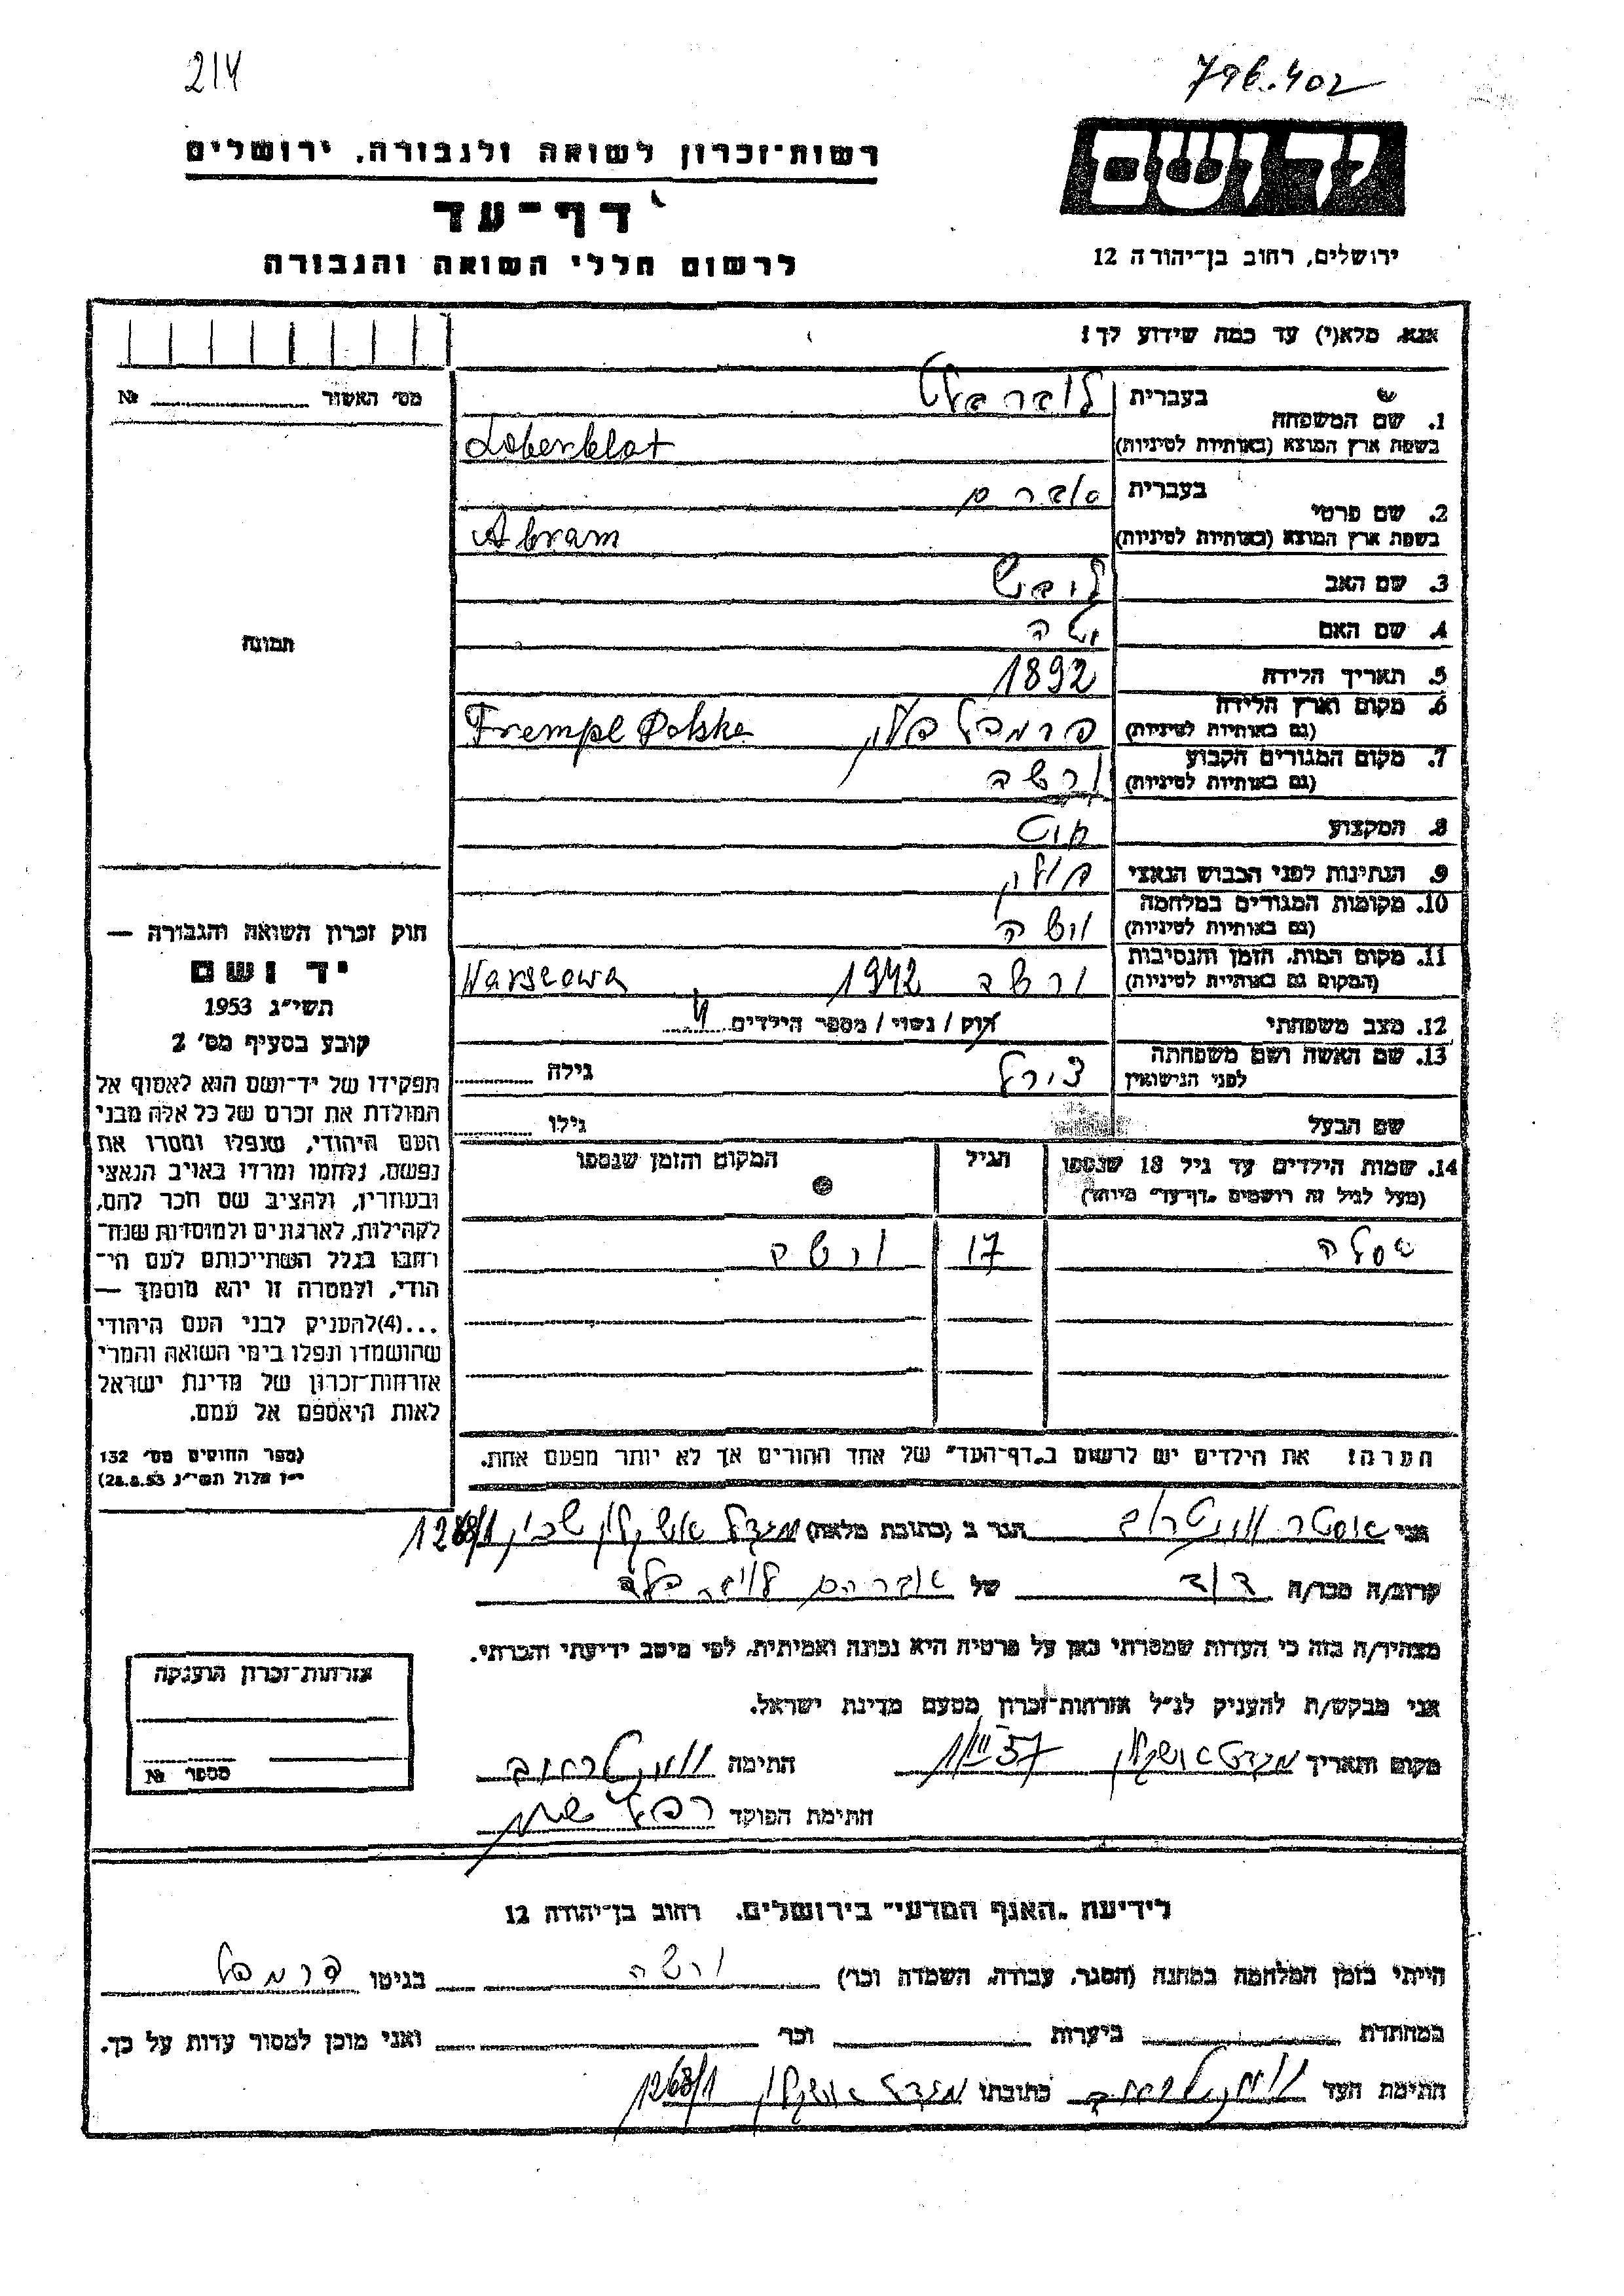 214
796.402
ידושם
רשות־זכרון לשואה ולגבורה, ירושלים
דף־עד
לרשום חללי השואה והגבורה
ירושלים, רחוב בן־יהודה 12
אנא, מלא(י) עד כמה שידוע לך:
מס׳ האשור № ........
1. שם המשפחה
בעברית
בשפת ארץ המוצא (באותיות לטיניות) Loberblat
2. שם פרטי
בעברית אברם
בשפת ארץ המוצא (באותיות לטיניות) Abram
3. שם האב לובש
4. שם האם
5. תאריך הלידה 1892
6. מקום וארץ הלידה
(גם באותיות לטיניות) פרמפל פולין Frempl Polska
7. מקום המגורים הקבוע
(גם באותיות לטיניות) ורשה
8. המקצוע
9. הנתינות לפני הכבוש הנאצי פולין
10. מקומות המגורים במלחמה
(גם באותיות לטיניות) ורשה
11. מקום המות, הזמן והנסיבות
(המקום גם באותיות לטיניות) ורשה 1942 Warszawa
12. מצב משפחתי רווק / נשוי / מספר הילדים 4
13. שם האשה ושם משפחתה
לפני הנישואין צירל גילה ........
שם הבעל גילו ........
14. שמות הילדים עד גיל 18 שנספו
(מעל לגיל זה רושמים „דף־עד״ מיוחד)
הגיל
המקום והזמן שנספו
17 ורשה
הערה: את הילדים יש לרשום ב„דף־העד״ של אחד ההורים אך לא יותר מפעם אחת.
תמונה
חוק זכרון השואה והגבורה —
יד ושם
תשי״ג 1953
קובע בסעיף מס׳ 2
תפקידו של יד־ושם הוא לאסוף אל
המולדת את זכרם של כל אלה מבני
העם היהודי, שנפלו ומסרו את
נפשם, נלחמו ומרדו באויב הנאצי
ובעוזריו, ולהציב שם וזכר להם,
לקהילות, לארגונים ולמוסדות שנח־
רבו בגלל השתייכותם לעם הי־
הודי, ולמטרה זו יהא מוסמך —
...(4)להעניק לבני העם היהודי
שהושמדו ונפלו בימי השואה והמרי
אזרחות־זכרון של מדינת ישראל
לאות היאספם אל עמם.
(ספר החוקים מס׳ 132
י״ז אלול תשי״ג 28.8.53)
אני אסתר הגר ב (כתובת מלאה) מגדל אשקלון 1268/1
קרוב/ה מכר/ה דוד של אברהם
מצהיר/ה בזה כי העדות שמסרתי כאן על פרטיה היא נכונה ואמיתית, לפי מיטב ידיעתי והכרתי.
אני מבקש/ת להעניק לנ״ל אזרחות־זכרון מטעם מדינת ישראל.
מקום ותאריך מגדל אשקלון 1/III 57 חתימה
חתימת הפוקד
אזרחות־זכרון הוענקה
מספר №
לידיעת „האגף המדעי״ בירושלים, רחוב בן־יהודה 12
הייתי בזמן המלחמה במחנה (הסגר, עבודה, השמדה וכו׳) ורשה בגיטו פרמפל
במחתרת ביערות וכו׳ ואני מוכן למסור עדות על כך.
חתימת העד כתובתו מגדל אשקלון 1268/1